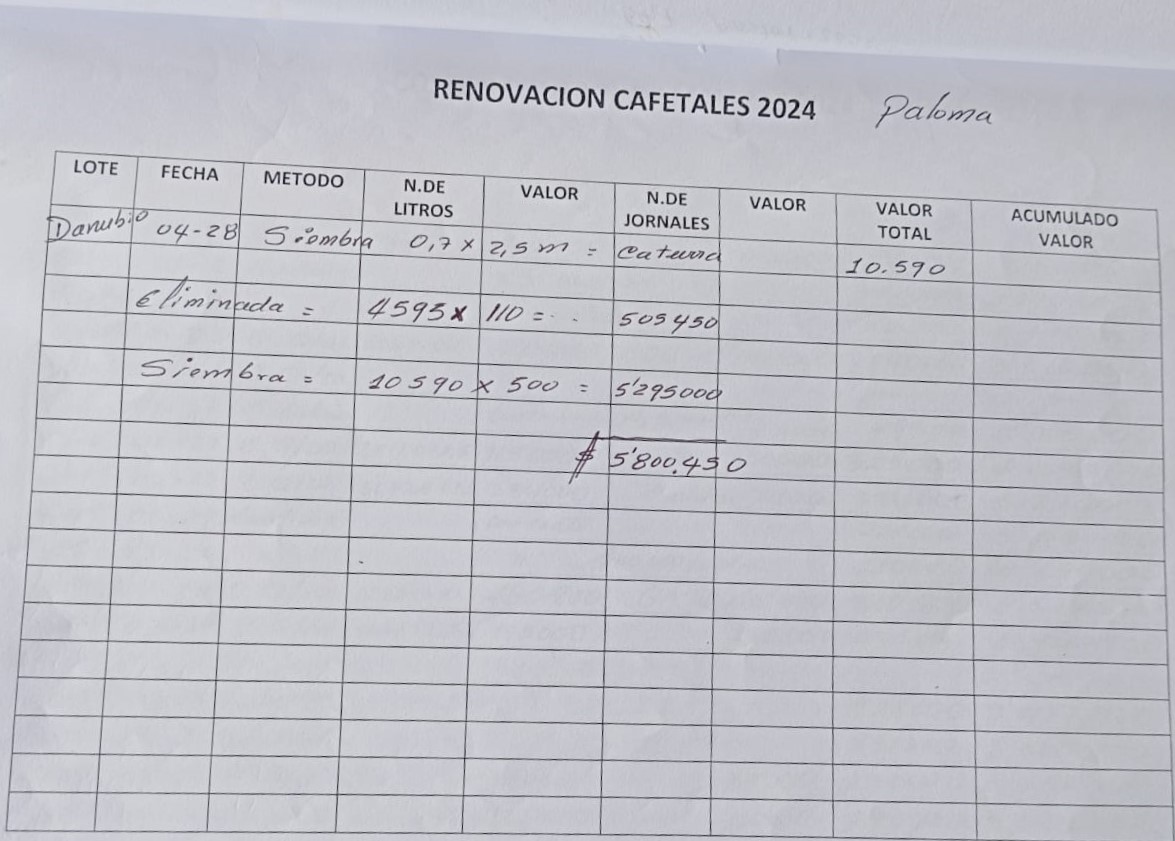 RENOVACION CAFETALES 2024 Paloma
LOTE FECHA METODO N.DE LITROS VALOR N.DE JORNALES VALOR VALOR TOTAL ACUMULADO VALOR
Danubio 04-28 Siembra 0,7 x 2,5 m = Caturra 10.590
Eliminada = 4595 x 110 = 505450
Siembra = 10590 x 500 = 5'295000
$ 5'800.450